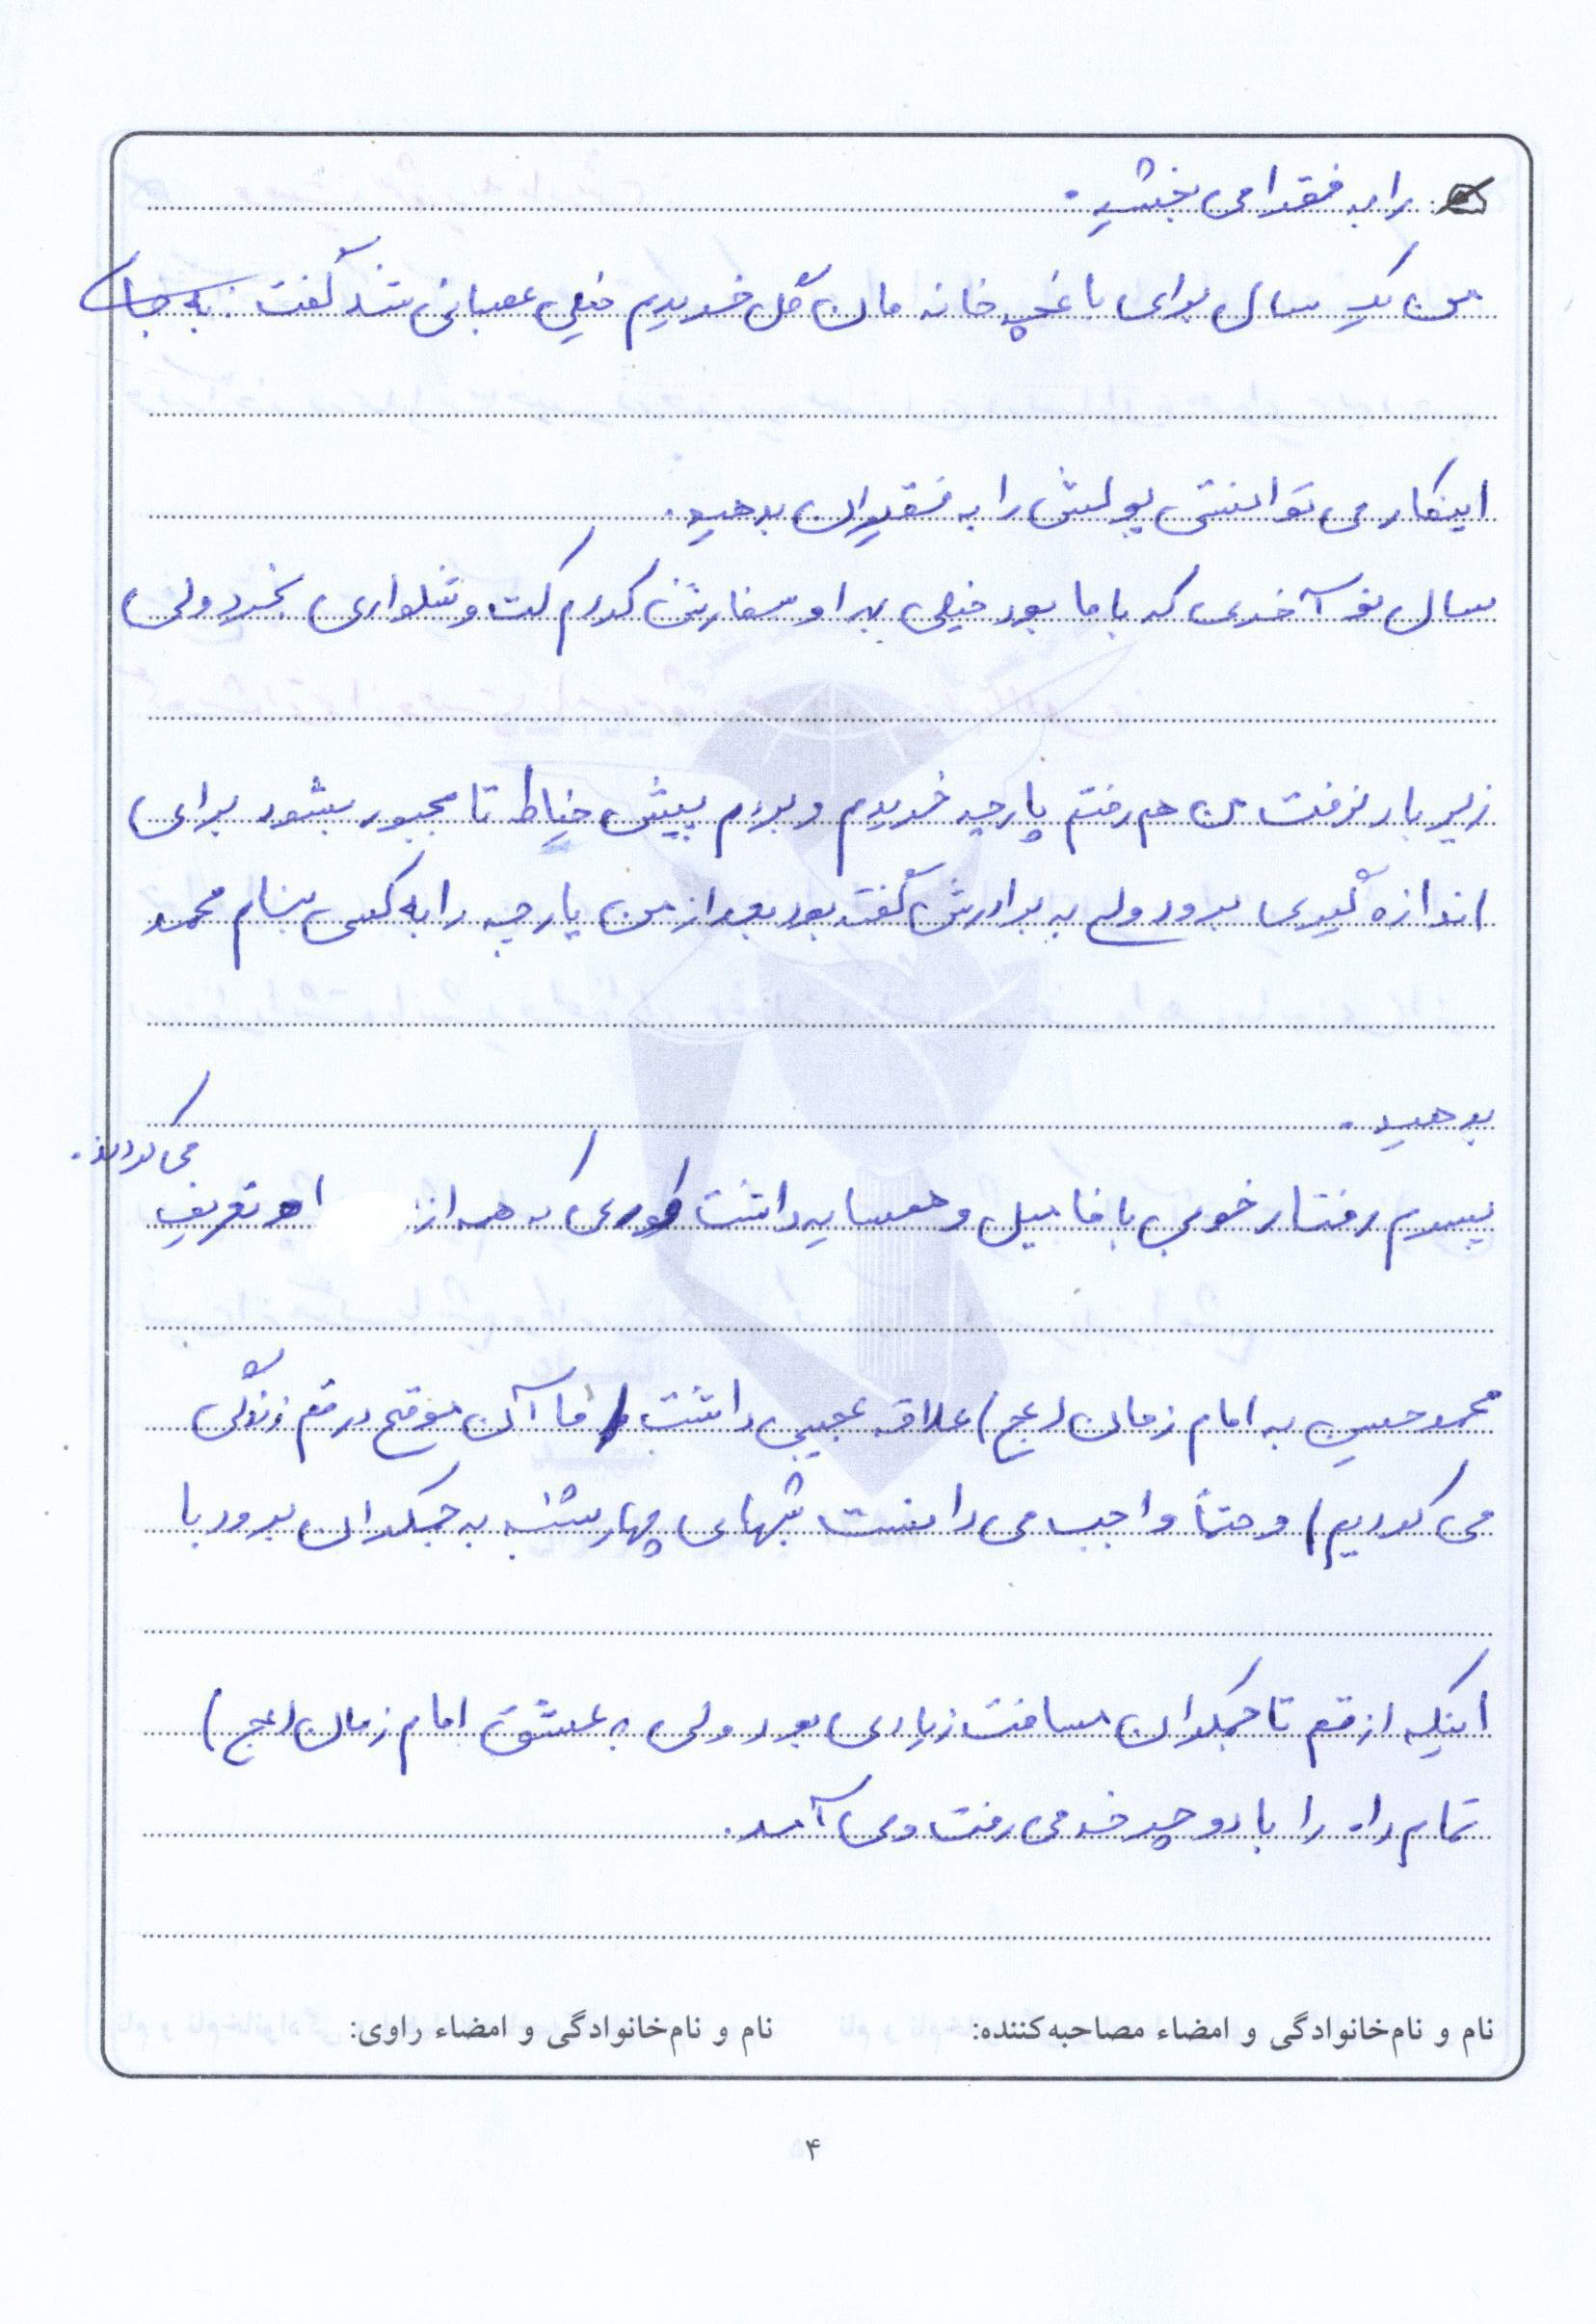 را به فقرا می بخشید.
من یک سال برای باغچه خانه مان گل خریدیم خیلی عصبانی شد گفت: به جای
اینکار می توانستی پولش را به فقیران بدهید.
سال نو آخری که با ما بود خیلی به او سفارش کردم کت و شلواری بخرد ولی
زیر بار نرفت من هم رفتم پارچه خریدم و بردم پیش خیاط تا مجبور بشود برای
اندازه گیری برود ولی به برادرش گفته بود بعد از من پارچه را به کسی بنام محمد
بدهید.
پسرم رفتار خوبی با فامیل و همسایه داشت طوری که همه از او تعریف
می کردند.
محمد حسین به امام زمان (عج) علاقه عجیبی داشت (ما آن موقع در قم زندگی
می کردیم) و حتماً واجب می دانست شبهای چهارشنبه به جمکران برود با
اینکه از قم تا جمکران مسافت زیادی بود ولی به عشق امام زمان (عج)
تمام راه را با دوچرخه می رفت و می آمد.
نام و نام‌خانوادگی و امضاء مصاحبه‌کننده: نام و نام‌خانوادگی و امضاء راوی:
۴